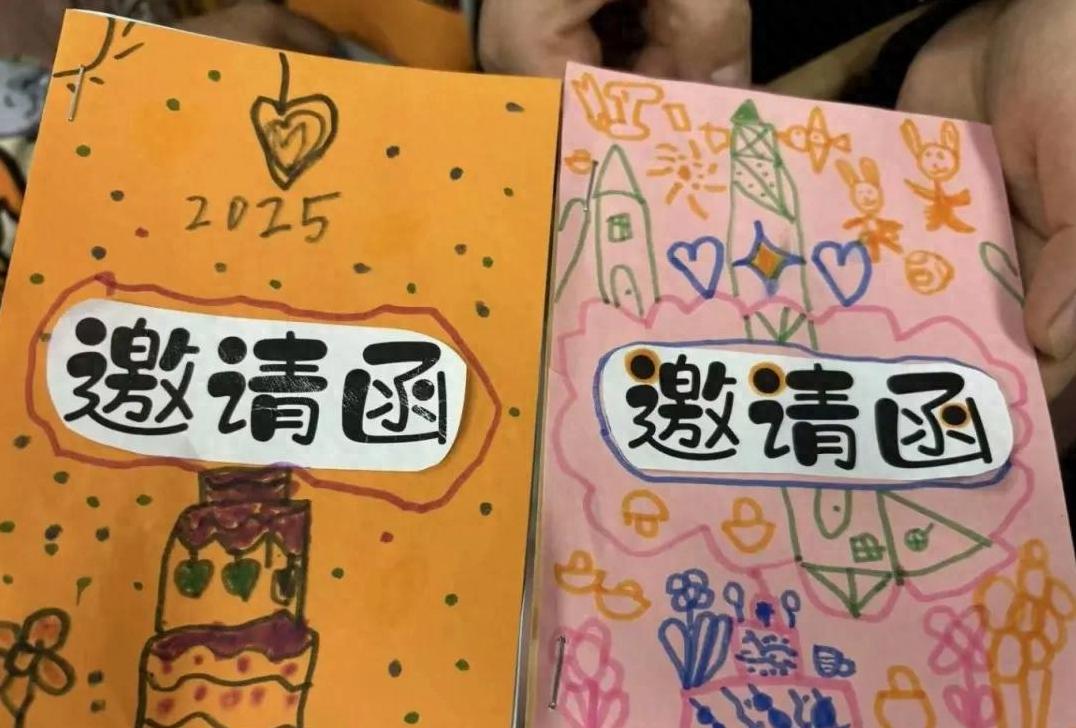 2025
邀请函
邀请函